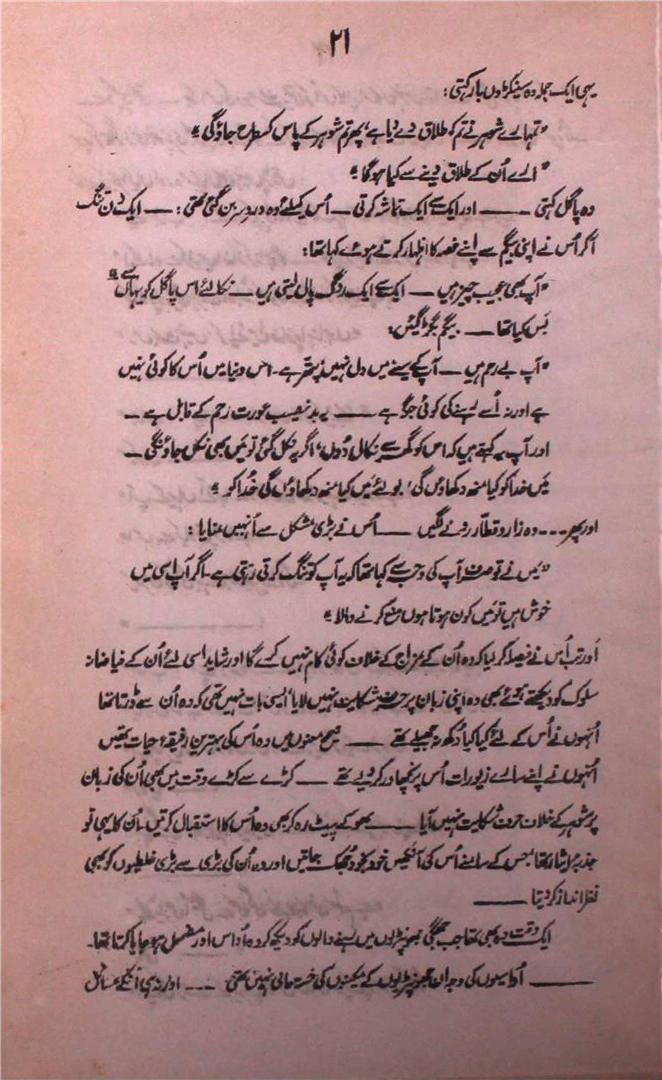 ۲۱
یہی ایک جملہ وہ سینکڑوں بار کہتی:
"تمہارے شوہر نے تم کو طلاق دے دیا ہے، پھر تم شوہر کے پاس کسطرح جاؤگی"
"ارے اُن کے طلاق دینے سے کیا ہوگا"
وہ پاگل کہتی —— اور ایک سے ایک تماشہ کرتی — اُس کیلئے وہ دردِ سر بن گئی تھی: — ایک دن تنگ
آکر اُس نے اپنی بیگم سے اپنے غصہ کا اظہار کرتے ہوئے کہا تھا:
"آپ بھی عجیب چیز ہیں — ایک سے ایک روگ پال لیتی ہیں — نکالئے اس پاگل کو یہاں سے"
بَس کیا تھا — بیگم بگڑ گئیں:
"آپ بے رحم ہیں — آپ کے سینے میں دل نہیں پتھر ہے۔ اس دنیا میں اُس کا کوئی نہیں
ہے اور نہ اُسے رہنے کی کوئی جگہ ہے —— یہ بدنصیب عورت رحم کے قابل ہے —
اور آپ یہ کہتے ہیں کہ اس کو گھر سے نکال دُوں، اگر یہ نکل گئی تو مَیں بھی نکل جاؤنگی —
مَیں خدا کو کیا منہ دکھاؤں گی، بولئے مَیں کیا منہ دکھاؤں گی خُدا کو"
اور پھر --- وہ زار و قطار رونے لگیں —— اُس نے بڑی مشکل سے اُنہیں منایا:
"مَیں نے تو صرف آپ کی وجہ سے کہا تھا کہ یہ آپ کو تنگ کرتی رہتی ہے۔ اگر آپ اسی میں
خوش ہیں تو مَیں کون ہوتا ہوں منع کرنے والا"
اور تب اُس نے فیصلہ کر لیا کہ وہ اُن کے مزاج کے خلاف کوئی کام نہیں کرے گا اور شاید اسی لئے اُن کے فیاضانہ
سلوک کو دیکھتے ہوئے بھی وہ اپنی زبان پر حرفِ شکایت نہیں لایا، ایسی بات نہیں تھی کہ وہ اُن سے ڈرتا تھا
اُنہوں نے اُس کے لئے کیا کیا دُکھ نہ جھیلے تھے —— صحیح معنوں میں وہ اُس کی بہترین رفیقۂ حیات تھیں
اُنہوں نے اپنے سارے زیورات اُس پر نچھاور کر دیئے تھے — کڑے سے کڑے وقت میں بھی اُن کی زبان
پر شوہر کے خلاف حرفِ شکایت نہیں آیا —— بھوکے پیٹ رہ کر بھی وہ اُس کا استقبال کرتیں۔ اُن کا یہی تو
جذبۂ ایثار تھا جس کے سامنے اُس کی آنکھیں خود بخود جُھک جاتیں اور وہ اُن کی بڑی سے بڑی غلطیوں کو بھی
نظر انداز کر دیتا ——
ایک وقت وہ بھی تھا جب جھگی جھونپڑیوں میں رہنے والوں کو دیکھ کر وہ اُداس اور مضمحل ہو جایا کرتا تھا۔
—— اُداسیوں کی وجہ ان جھونپڑیوں کے مکینوں کی خستہ حالی نہیں تھی --- اور نہ ہی اُنکے مسائل